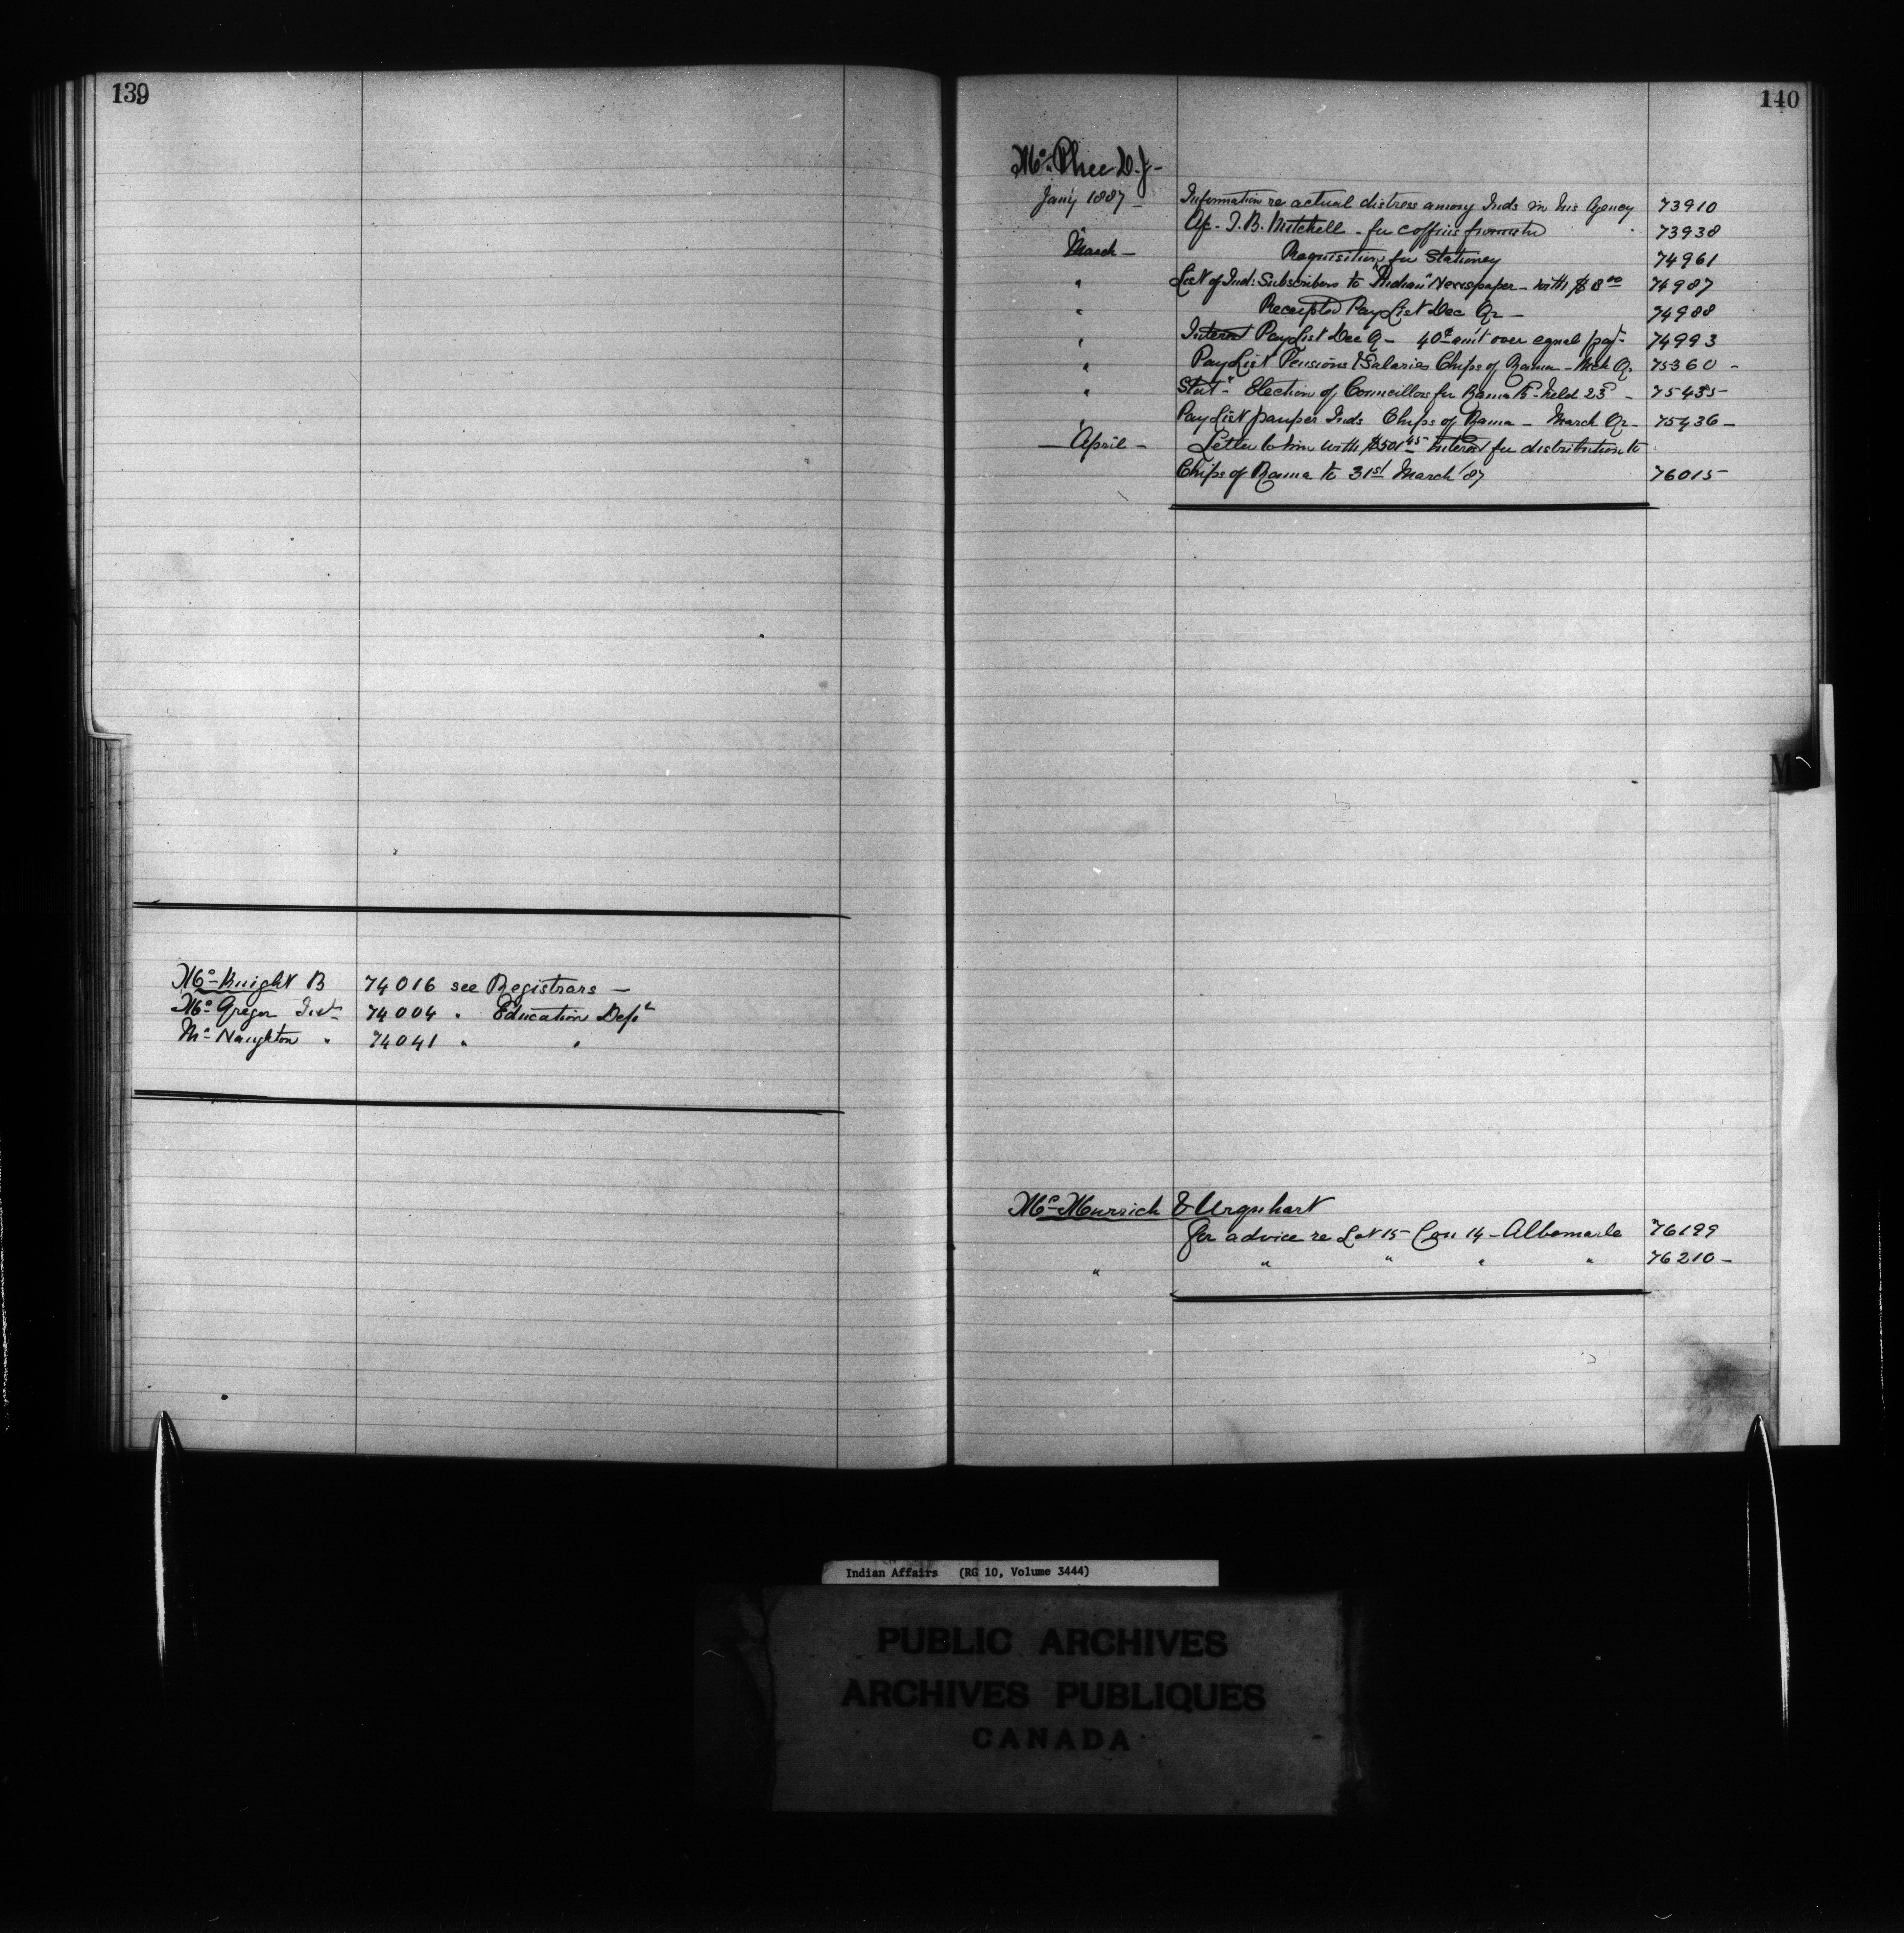 139
Mc Knight B 74016 see Registrars —
Mc Gregor Inst 74004 " Education Dept
Mc Naughton " 74041 " "
140
Mc Phee D. J -
Jany 1887 - Information re actual distress among Inds in his Agency 73910
Ac - J. B. Mitchell - for coffins 73938
March - Requisition for Stationery 74961
" List of Ind: Subscribers to "Indian" Newspaper - with $8 00 74987
" Receipted Pay List Dec Qr - 74988
" Interest Paylist Dec Q - 40¢ am't over equal 74993
" Pay List Pensions & Salaries Chips of Rama - Mch Qr 75360 -
" Stat - Election of Councillors for Rama B - held 23d - 75435
" Pay List pauper Inds Chips of Rama - March Qr - 75436 -
— April - Letter to him with $501 45 Interest for distribution to
Chips of Rama to 31st March '87 76015
M
Mc Murrich & Urquhart
for advice re Lot 15 - Con 14 - Albemarle 76199
" " " " " 76210 -
Indian Affairs (RG 10, Volume 3444)
PUBLIC ARCHIVES
ARCHIVES PUBLIQUES
CANADA